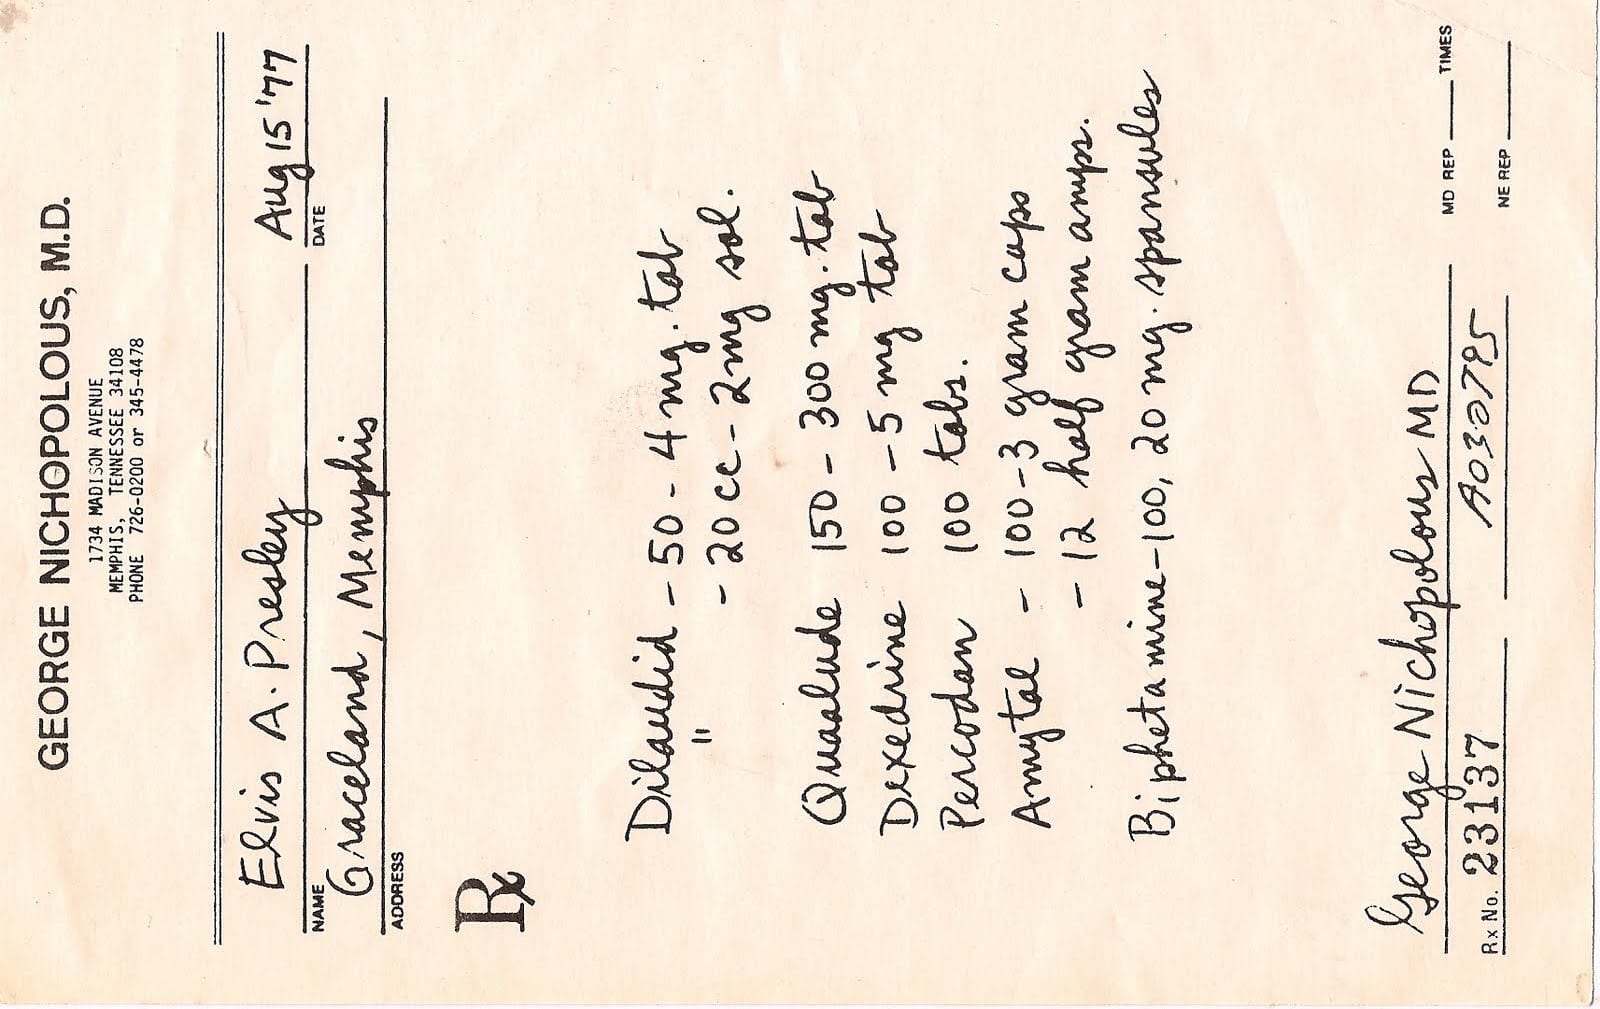 GEORGE NICHOPOLOUS, M.D.
1734 MADISON AVENUE
MEMPHIS, TENNESSEE 34108
PHONE 726-0200 or 345-4478
Elvis A. Presley Aug 15 '77
NAME DATE
Graceland, Memphis
ADDRESS
Rx
Dilaudid - 50 - 4 mg. tab
" - 20 cc - 2 mg sol.
Quaalude 150 - 300 mg. tab
Dexedrine 100 - 5 mg tab
Percodan 100 tabs.
Amytal - 100 - 3 gram caps
- 12 half gram amps.
Biphetamine - 100, 20 mg. spansules
George Nichopolous MD
MD REP TIMES
Rx No. 23137 A030795 NE REP